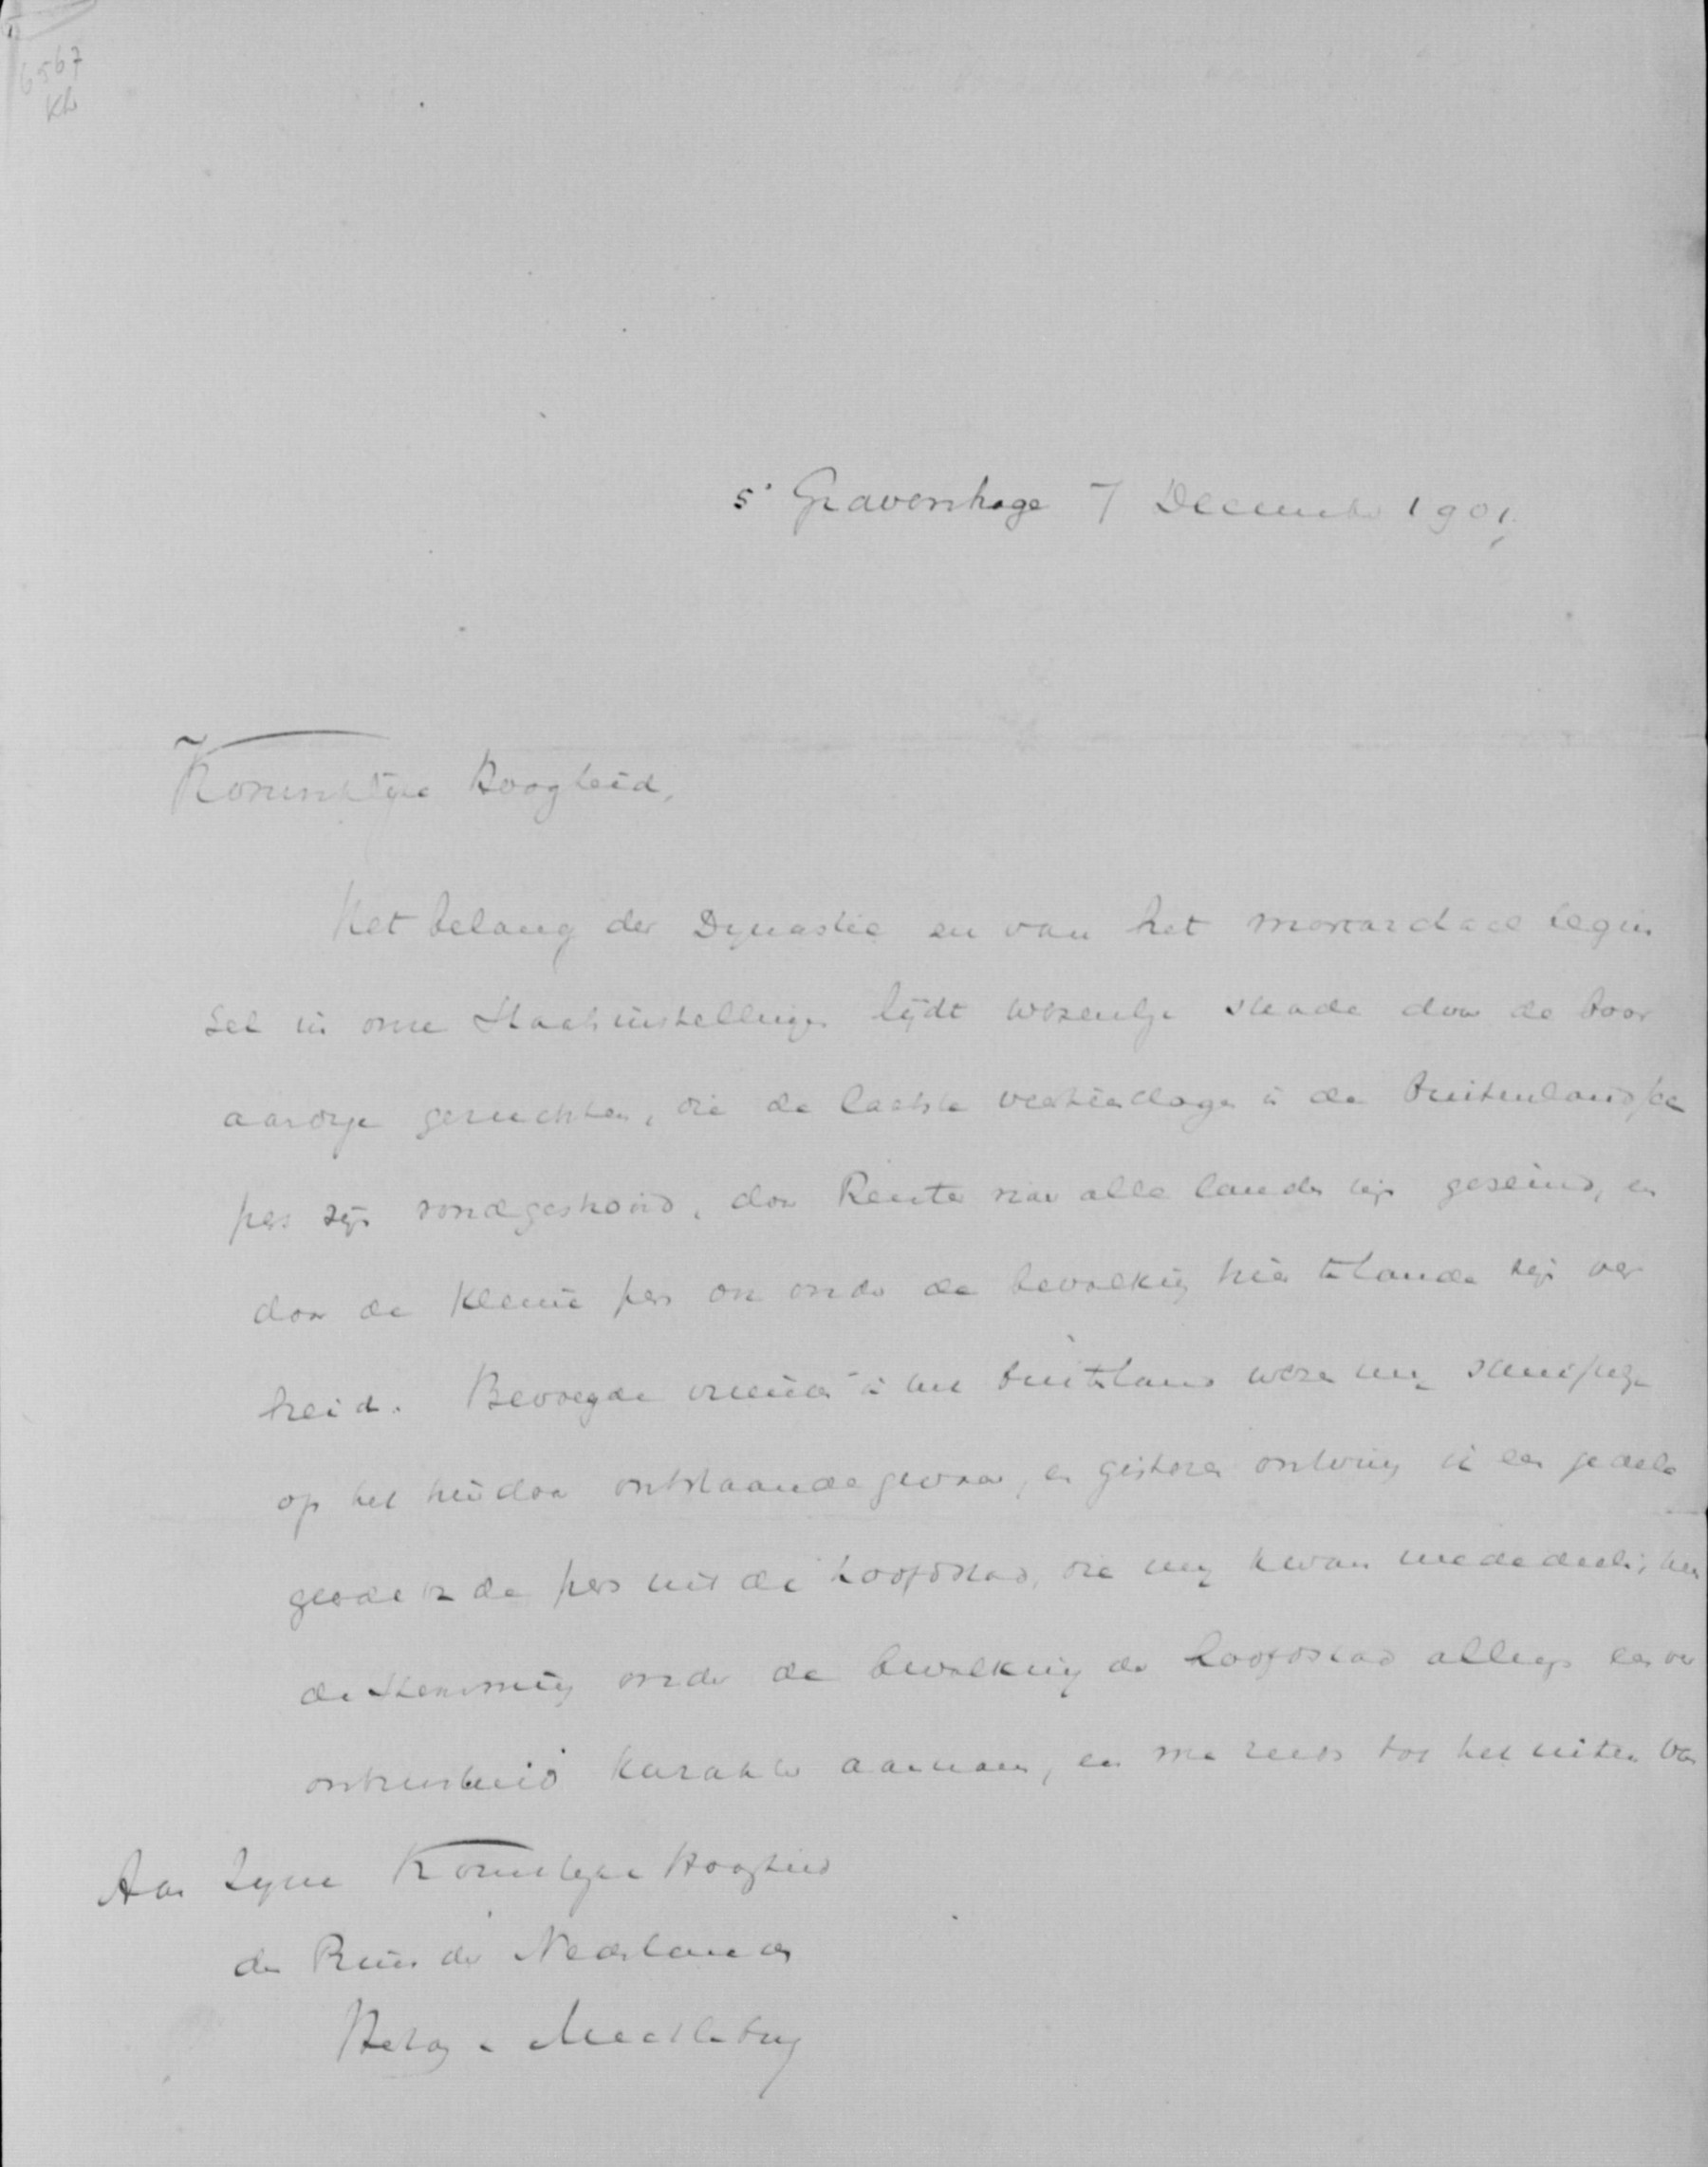 6567
Kh
s' Gravenhage 7 December 1901.
Koninklijke Hoogheid,
Het belang der Dynastie en van het monarchaal begin
sel in onze Staatsinstellingen lijdt wezenlijke schade door de boos
aardige geruchten, die de laatste veertien dagen in de buitenlandsche
pers zijn rondgestrooid, door Reuter naar alle landen zijn geseind, en
door de kleine pers ook onder de bevolking hier te lande zijn ver
breid. Bevoegde vrienden in het buitenland wezen mij
op het hierdoor ontstaande gevaar, en gisteren ontving ik een
de pers uit de hoofdstad, die mij kwam mededeelen, hoe
de stemming onder de bevolking der hoofdstad allengs een ver
ontrustend karakter aannam, en reeds tot het uiten van
Aan Zijne Koninklijke Hoogheid
den Prins der Nederlanden
Hertog v. Mecklenburg